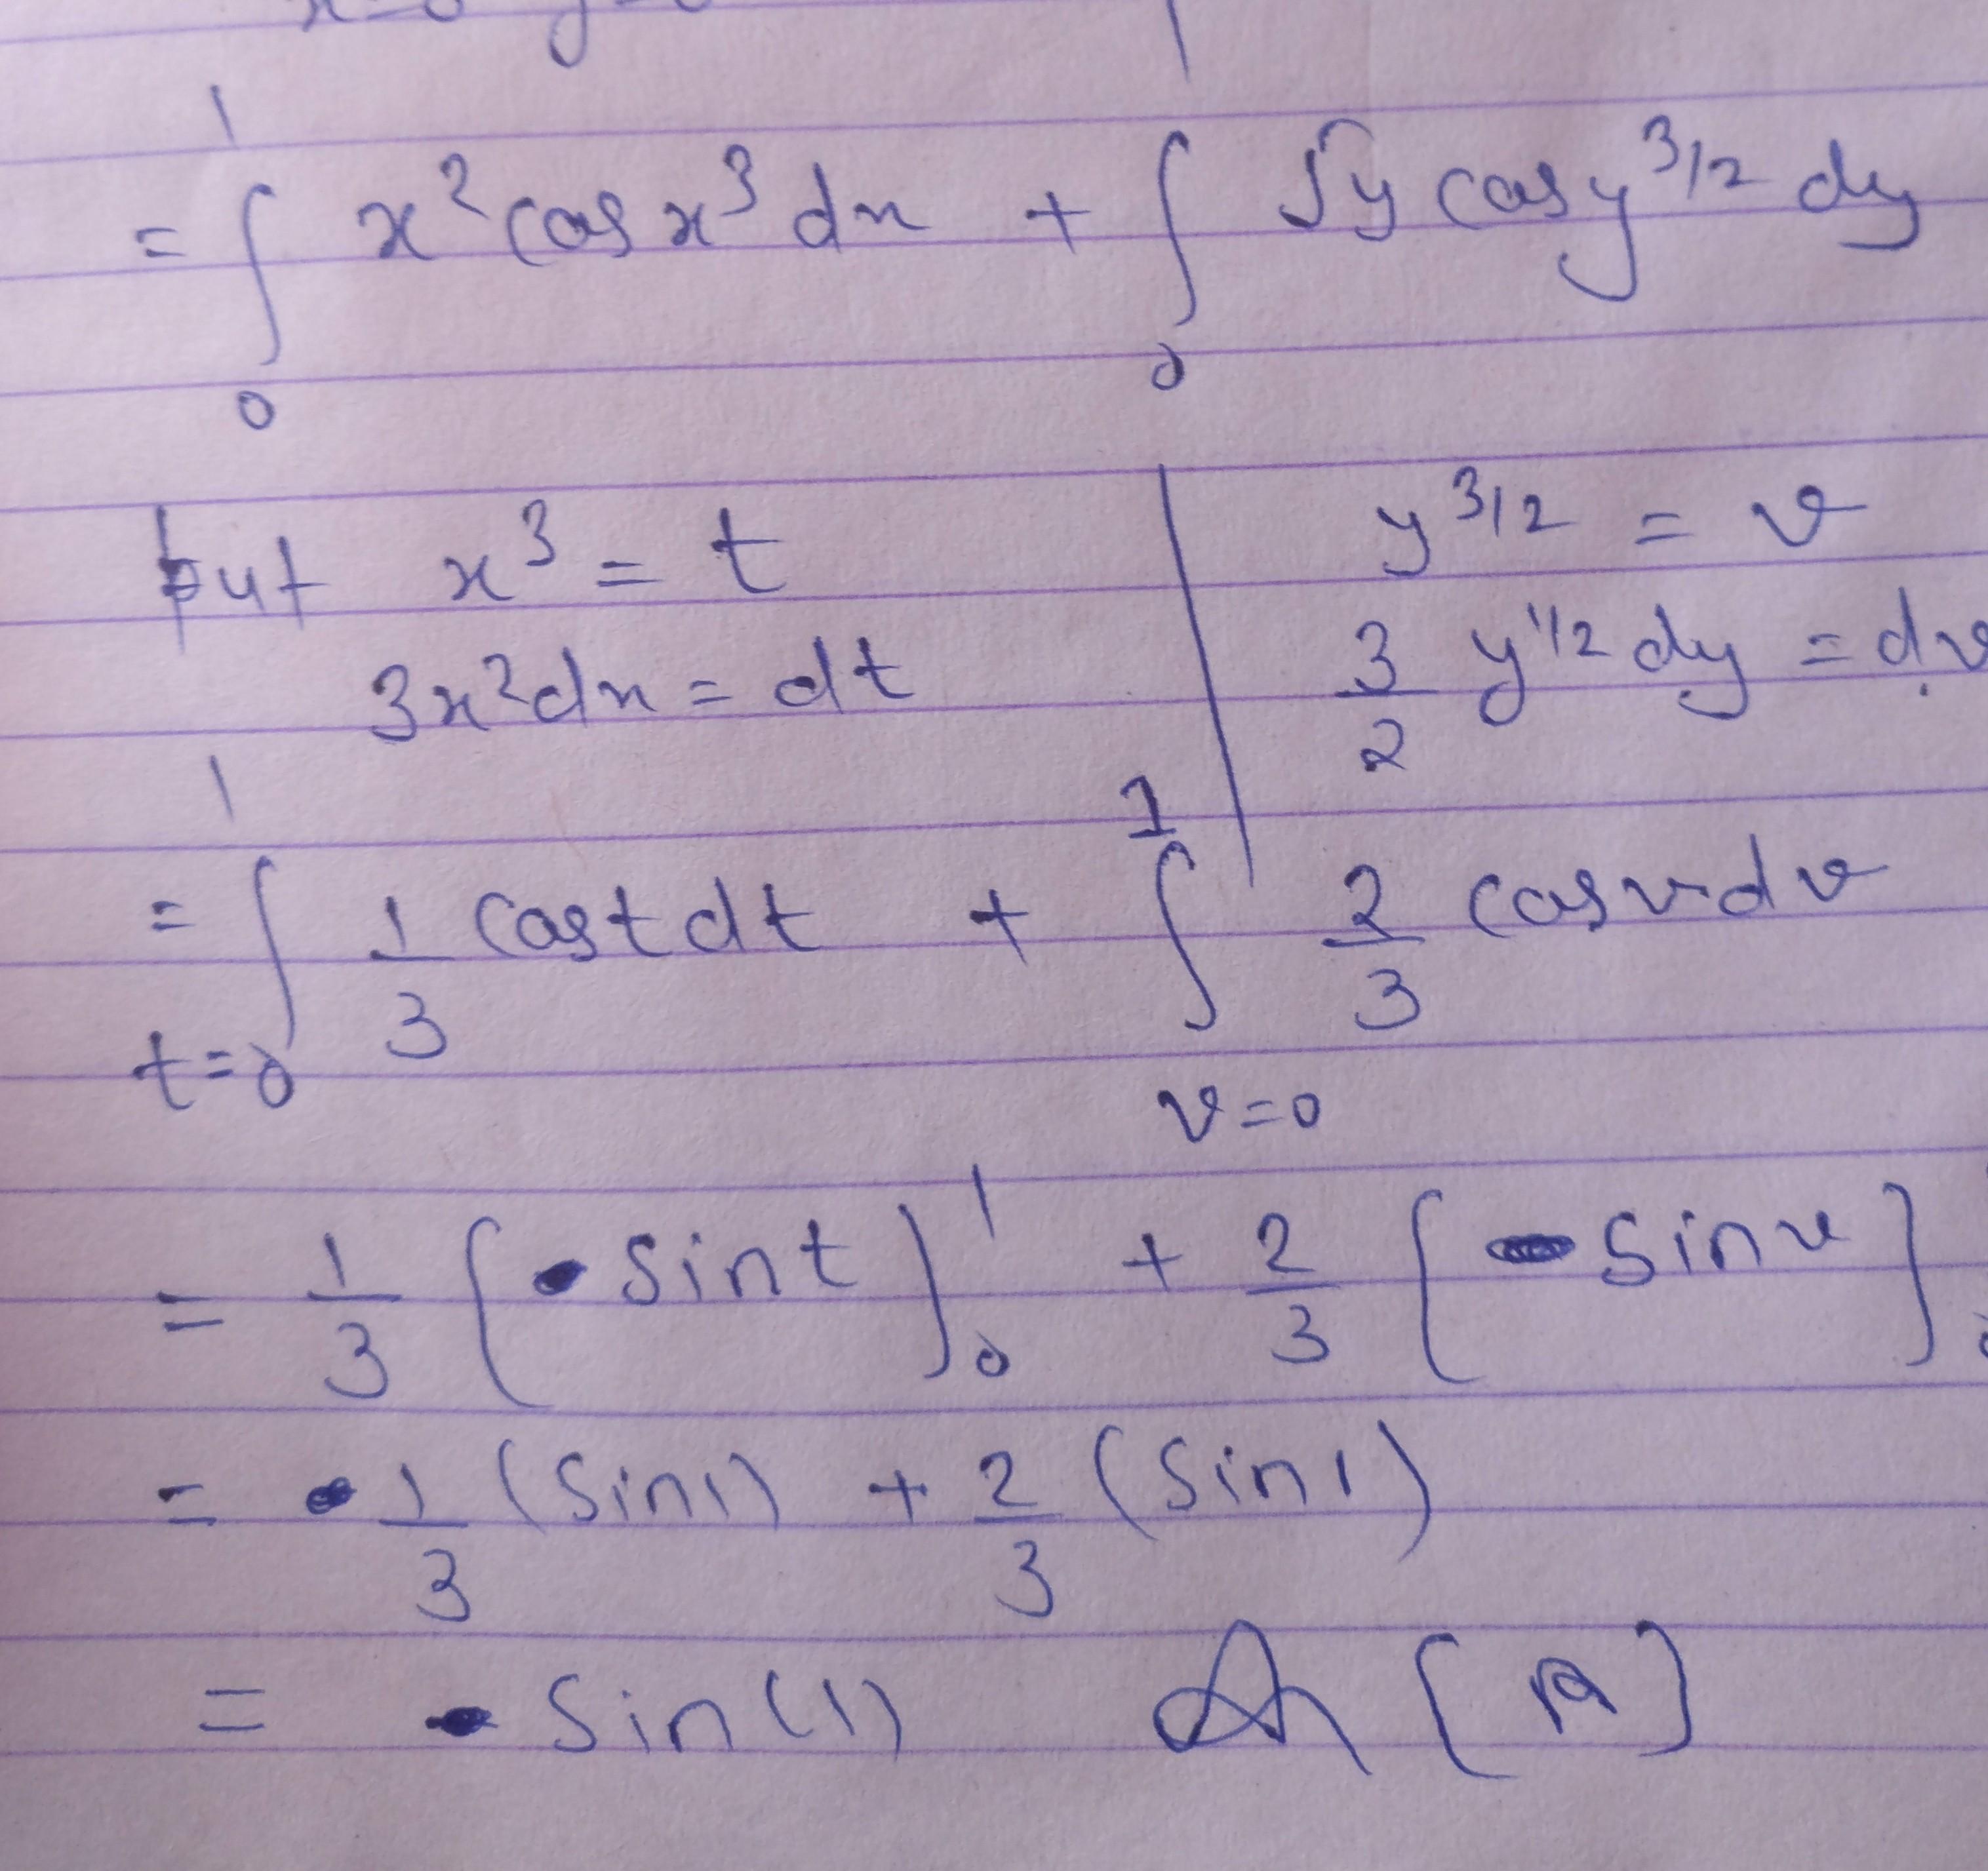 = ∫₀¹ x² cos x³ dx + ∫₀ √y cos y^3/2 dy
put x³ = t | y^3/2 = v
3x² dx = dt | 3/2 y^1/2 dy = dv
= ∫_{t=0}^1 1/3 cos t dt + ∫_{v=0}^1 2/3 cos v dv
= 1/3 [sin t]₀¹ + 2/3 [sin v]
= 1/3 (sin 1) + 2/3 (sin 1)
= sin(1) [A]